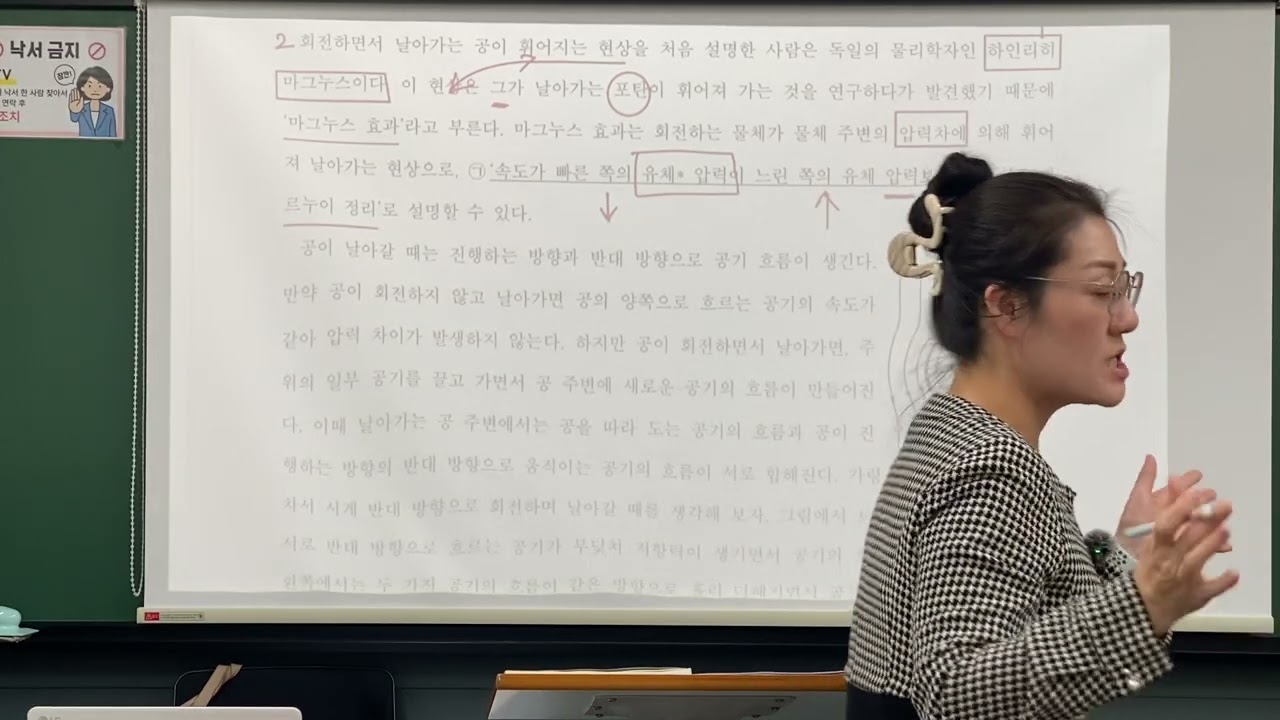 낙서 금지
TV
잠깐!
낙서 한 사람 찾아서
연락 후
조치
2 회전하면서 날아가는 공이 휘어지는 현상을 처음 설명한 사람은 독일의 물리학자인 하인리히
마그누스이다. 이 현상은 그가 날아가는 포탄이 휘어져 가는 것을 연구하다가 발견했기 때문에
'마그누스 효과'라고 부른다. 마그누스 효과는 회전하는 물체가 물체 주변의 압력차에 의해 휘어
져 날아가는 현상으로, ㉠'속도가 빠른 쪽의 유체* 압력이 느린 쪽의 유체 압력보
르누이 정리'로 설명할 수 있다.
공이 날아갈 때는 진행하는 방향과 반대 방향으로 공기 흐름이 생긴다.
만약 공이 회전하지 않고 날아가면 공의 양쪽으로 흐르는 공기의 속도가
같아 압력 차이가 발생하지 않는다. 하지만 공이 회전하면서 날아가면, 주
위의 일부 공기를 끌고 가면서 공 주변에 새로운 공기의 흐름이 만들어진
다. 이때 날아가는 공 주변에서는 공을 따라 도는 공기의 흐름과 공이 진
행하는 방향의 반대 방향으로 움직이는 공기의 흐름이 서로 합해진다. 가령
차서 시계 반대 방향으로 회전하며 날아갈 때를 생각해 보자. 그림에서
서로 반대 방향으로 흐르는 공기가 부딪쳐 저항력이 생기면서 공기의
왼쪽에서는 두 가지 공기의 흐름이 같은 방향으로 흘러 더해지면서
LG